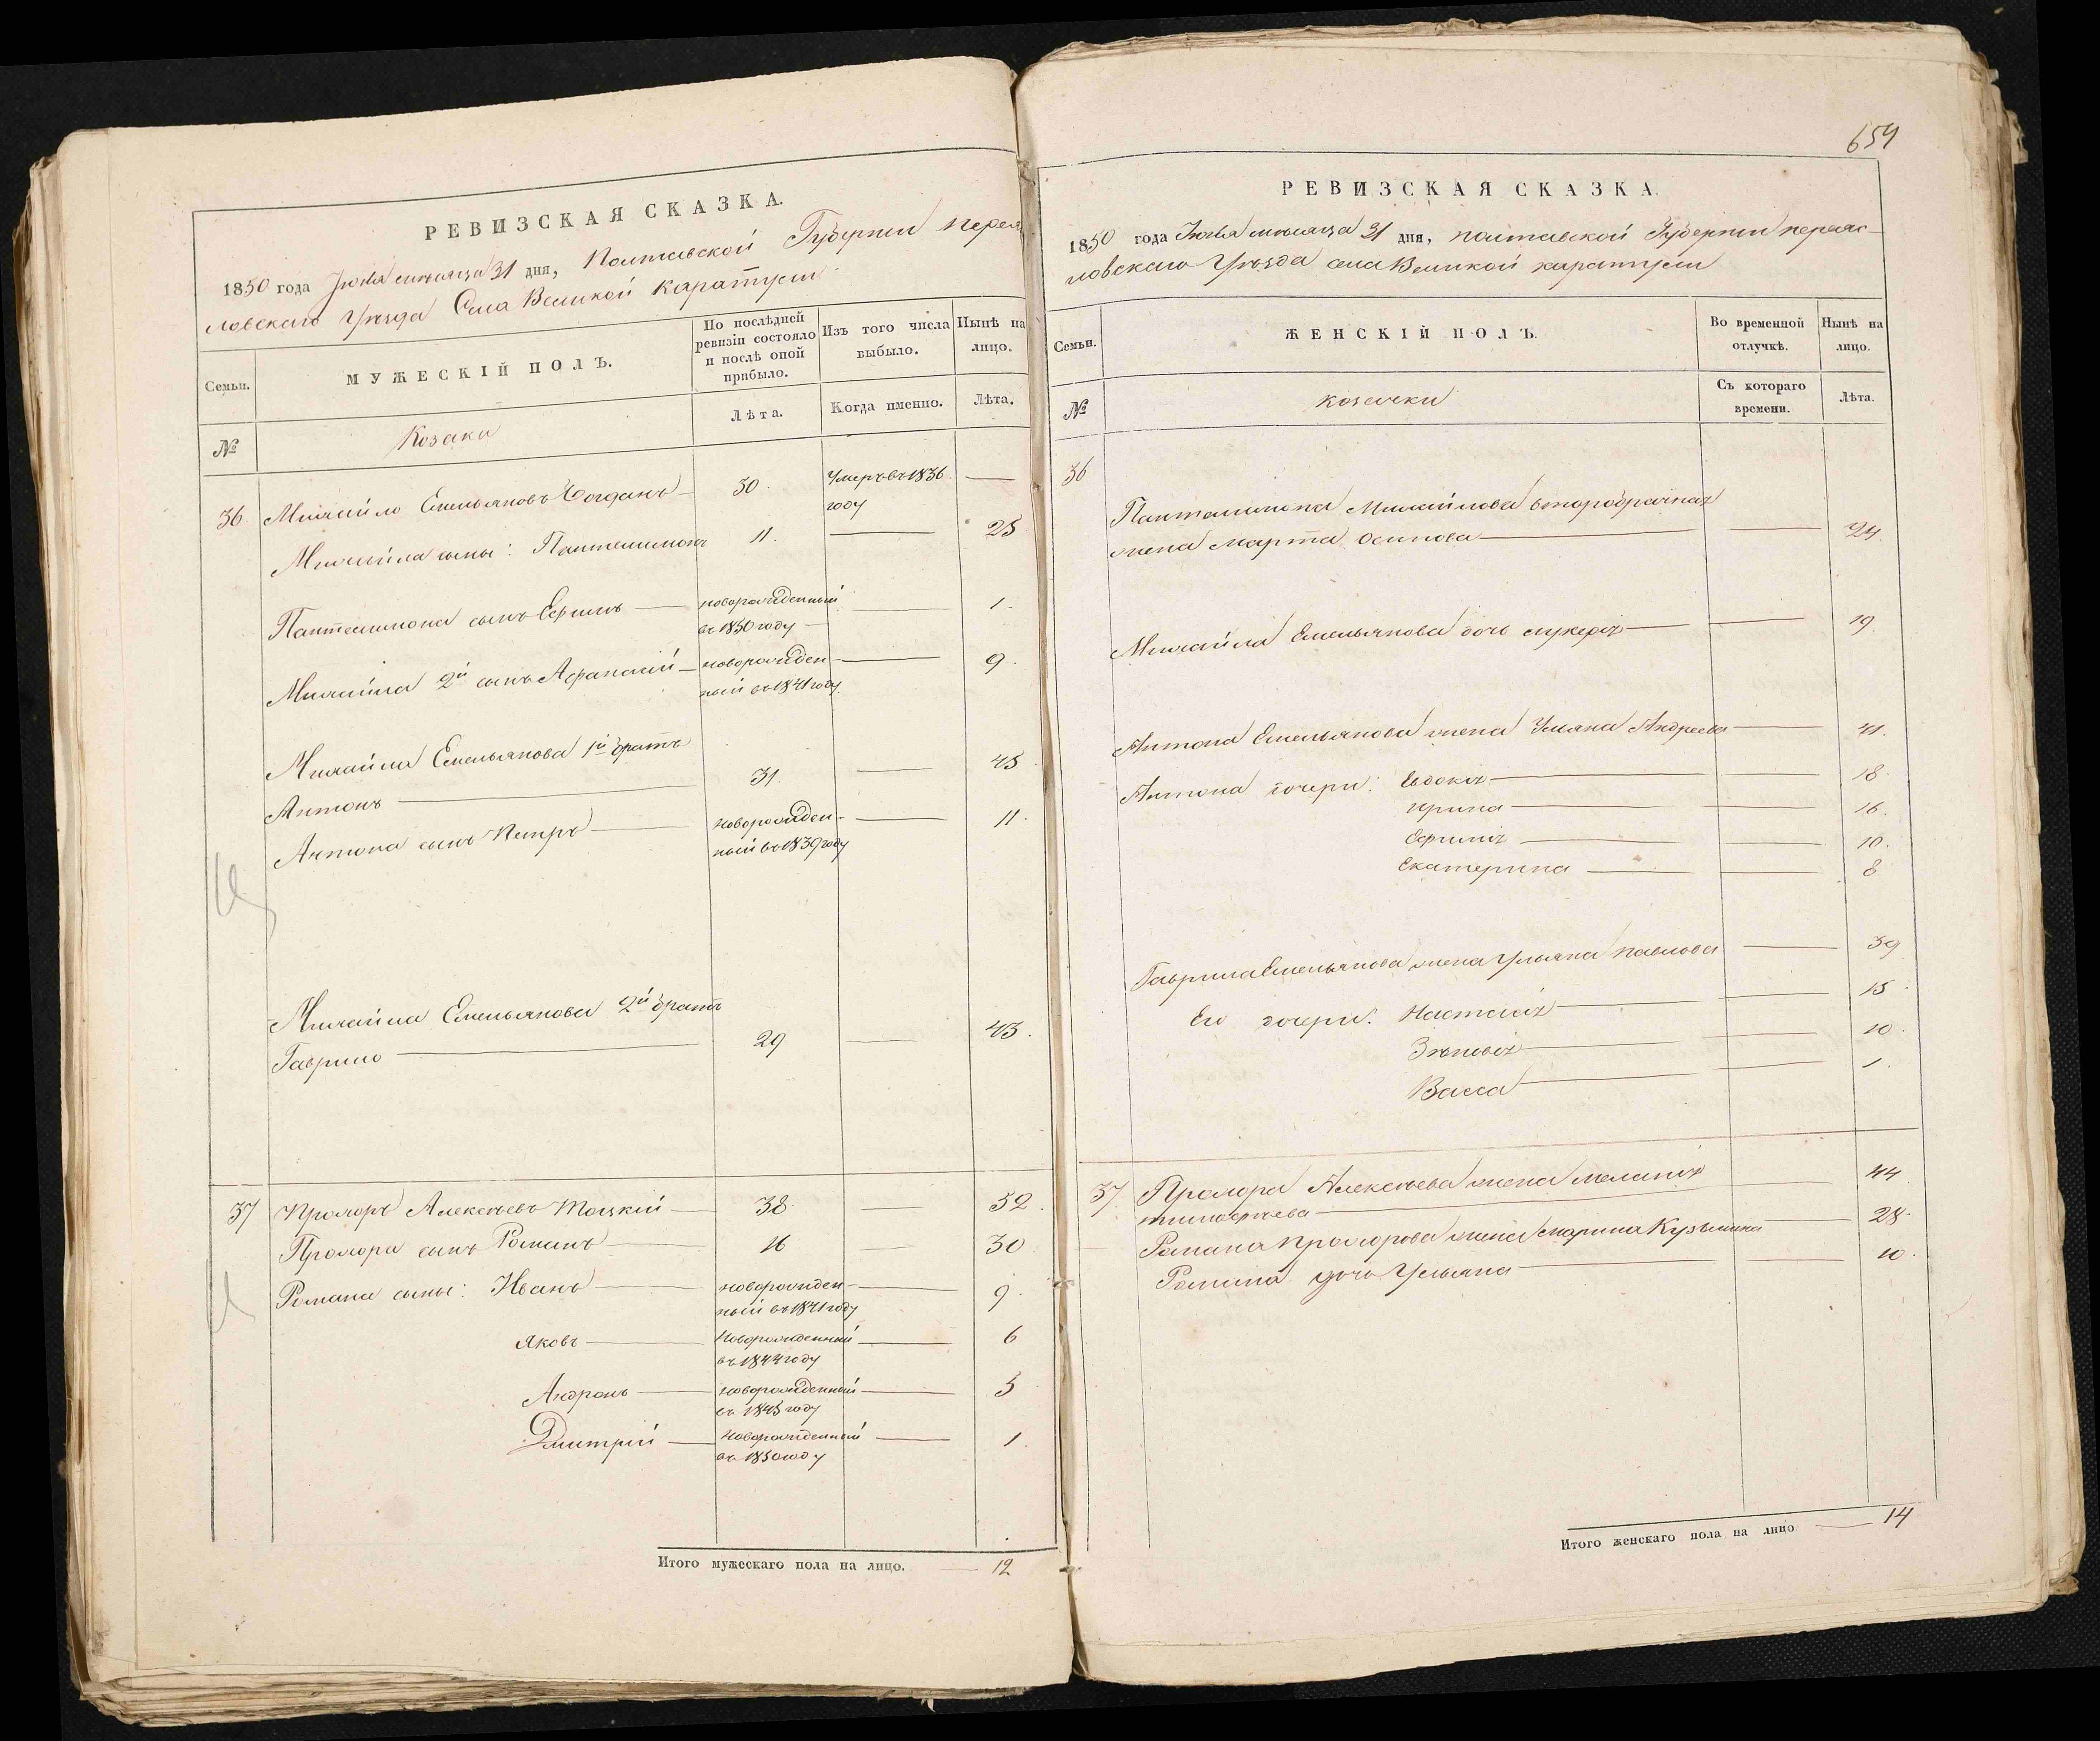 РЕВИЗСКАЯ СКАЗКА.
1850 года Июля месяца 31 дня, Полтавской Губернии Перея
ловскаго Уѣзда Села Великой Каратули
Семьи.
МУЖЕСКІЙ ПОЛЪ.
По послѣдней ревизіи состояло и послѣ оной прибыло.
Изъ того числа выбыло.
Нынѣ на лицо.
№
Козаки
Лѣта.
Когда именно.
Лѣта.
36 Михайло Емельяновъ 30. Умеръ въ 1836 году —
Михайла сыны: Пантелимонъ 11. — 25
Пантелимона сынъ Ефимъ — новорожденный въ 1850 году — 1.
Михайла 2й сынъ Афанасий — новорожден- ный въ 1841 году. — 9.
Михайла Емельянова 1й братъ
Антонъ — 31. — 45.
Антона сынъ Петръ — новорожден- ный въ 1839 году — 11.
Михайла Емельянова 2й братъ
Гаврило — 29 — 43.
37 Прохоръ Алексѣевъ Тоцкій — 38 — 52.
Прохора сынъ Романъ — 16 — 30.
Романа сыны: Иванъ — новорожден- ный въ 1841 году — 9.
Яковъ — Новорожденный въ 1844 году — 6
Андронъ — новорожденный въ 1845 году — 5
Дмитрій — Новорожденный въ 1850 году — 1.
Итого мужескаго пола на лицо. — 12
659
РЕВИЗСКАЯ СКАЗКА.
1850 года Июля месяца 31 дня, Полтавской Губернии Переяс-
ловскаго Уѣзда села Великой Каратули
Семьи.
ЖЕНСКІЙ ПОЛЪ.
Во временной отлучкѣ.
Нынѣ на лицо.
№
Козачки
Съ котораго времени.
Лѣта.
36
Пантелимона Михайлова второбрачная
жена Марта Осипова — — 24.
Михайла Емельянова дочь Лукерія — — 19.
Антона Емельянова жена Ульяна Андреева — 41.
Антона дочери: Евдокія — — 18.
Ирина — — 16.
Ефимія — — 10.
Екатерина — — 8
Гаврила Емельянова жена Ульяна Павлова — 39
Его дочери: Настасія — — 15.
Зѣновія — — 10.
Васса — — 1.
37 Прохора Алексѣева жена Меланія
Тимофѣева — — 44
Романа Прохорова жена Марина Кузьмина — 28.
Романа дочь Ульяна — — 10.
Итого женскаго пола на лицо — 14